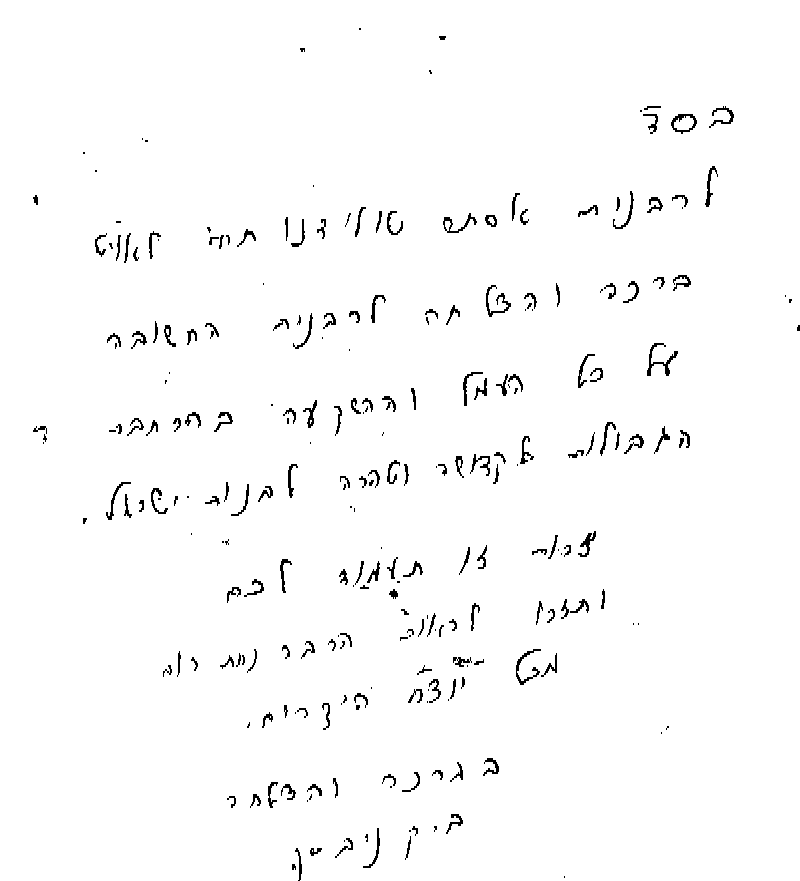 בסד
לרבנית אסתר טולידנו תחי' לאוי"ט
ברכה והצלחה לרבנית החשובה
על כל העמל וההשקעה בהרחבת
הגבולות של קדושה וטהרה לבנות ישראל.
זכות זו תעמוד לכם
ותזכו לראות הרבה נחת רוב
מכל יוצ"ח היקרים.
בברכה והצלחה